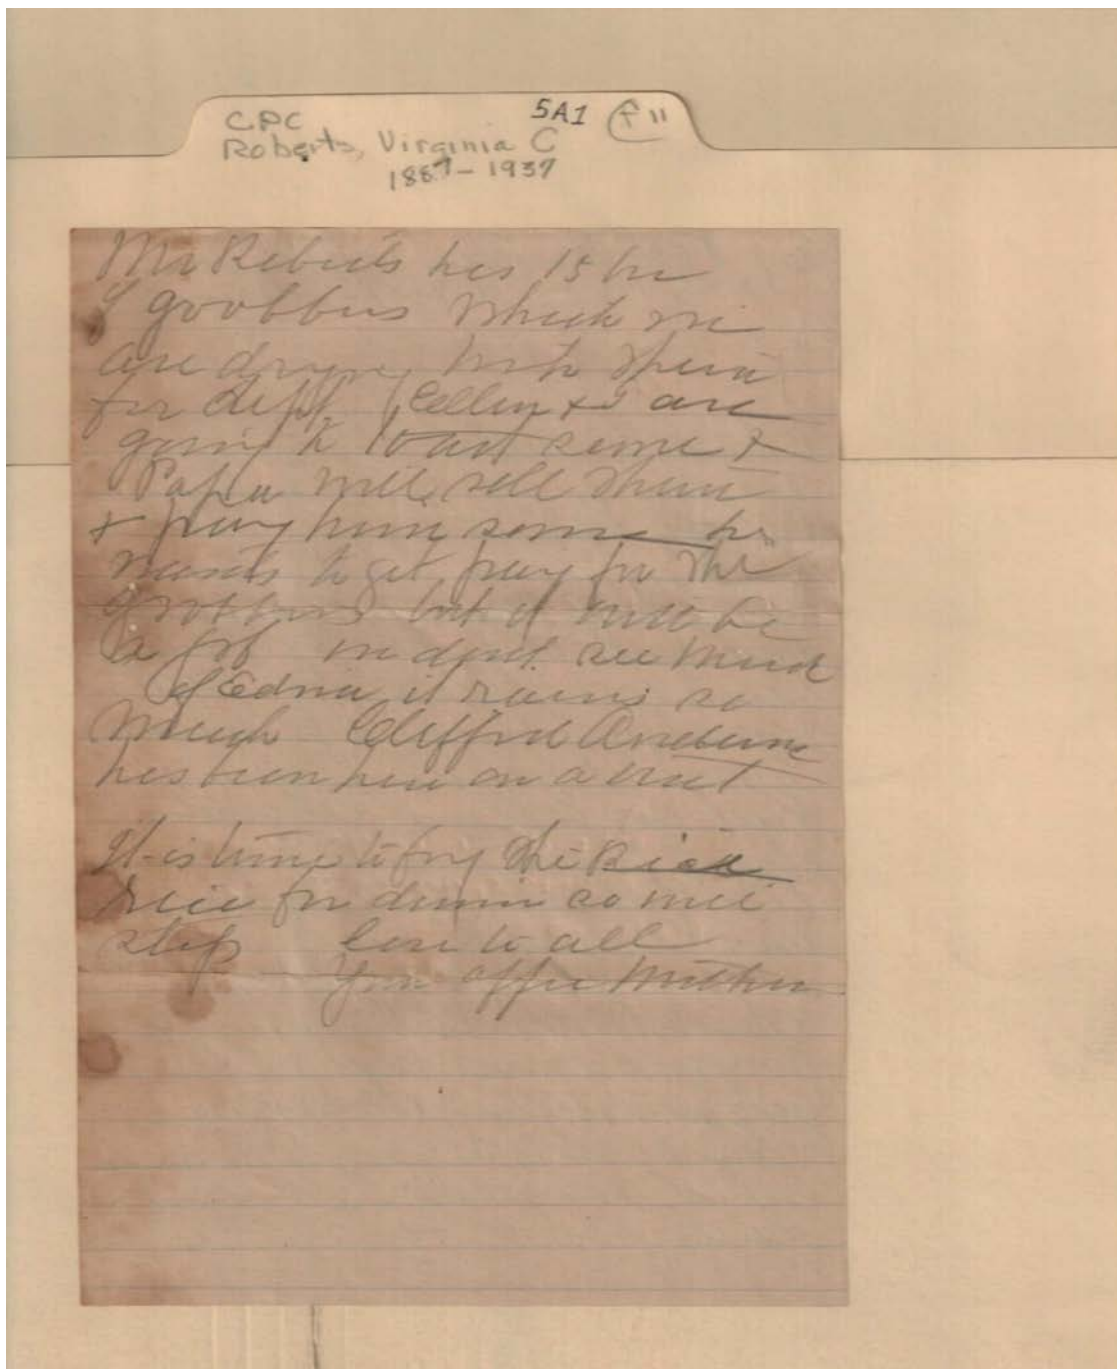 CPC 5A1 f "
Roberts, Virginia C
1887-1937
Mr Roberts has 15 bu
of goobbers which we
are drying, with them
for Dept. Ellen & I are
going to toast some &
Papa will sell them
& pay him some he
wants to get pay for the
goobbers but it will be
a job we dont see much
of Edna, it rains so
much Clifford
has been here on a visit
It is time to fry the Rice
rice for dinner so will
stop love to all
Your affec Mother